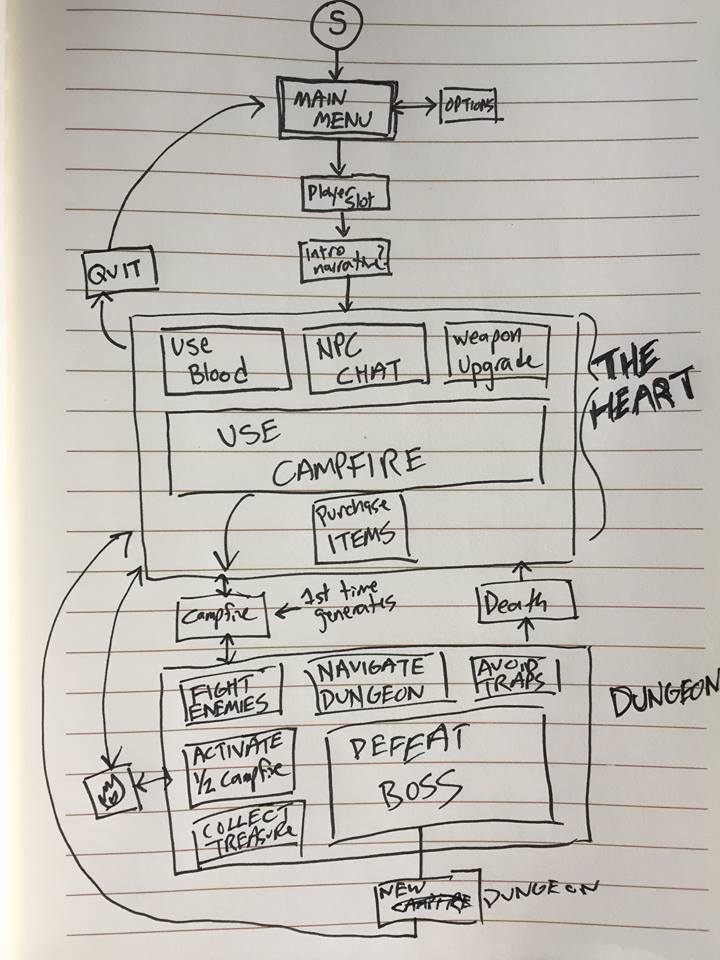 S
MAIN
MENU
OPTIONS
Player
Slot
Intro
narrative?
QUIT
Use
Blood
NPC
CHAT
Weapon
Upgrade
THE
HEART
USE
CAMPFIRE
Purchase
ITEMS
Campfire
1st time
generates
Death
FIGHT
ENEMIES
NAVIGATE
DUNGEON
AVOID
TRAPS
DUNGEON
ACTIVATE
1/2 Campfire
DEFEAT
BOSS
COLLECT
TREASURE
NEW
CAMPFIRE DUNGEON